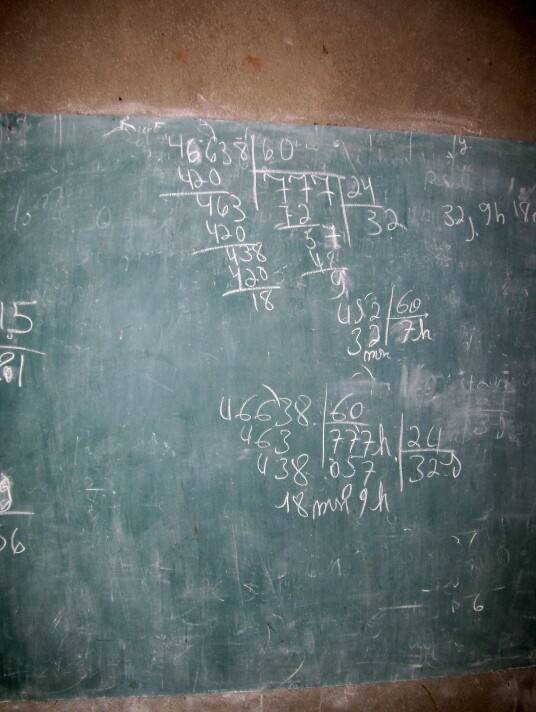 46638 60
420 777 24
463 72 32 32j, 9h 18m
420 57
438 48
420 9
18
452 60
32 7h
mn
15
81
46638 60
463 777h 24
438 057 32
18 mn 9h
56
6